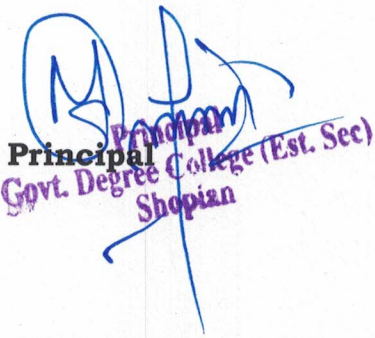 Principal
Principal
Govt. Degree College (Est. Sec)
Shopian